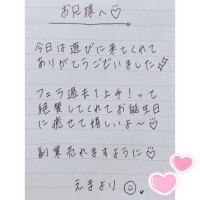 お兄様へ♡
今日は遊びに来てくれて
ありがとうございました
フェラ過去1上手!って
絶賛してくれてお誕生日
に癒せて嬉しいよ〜♡
副業売れますように♡
えまより